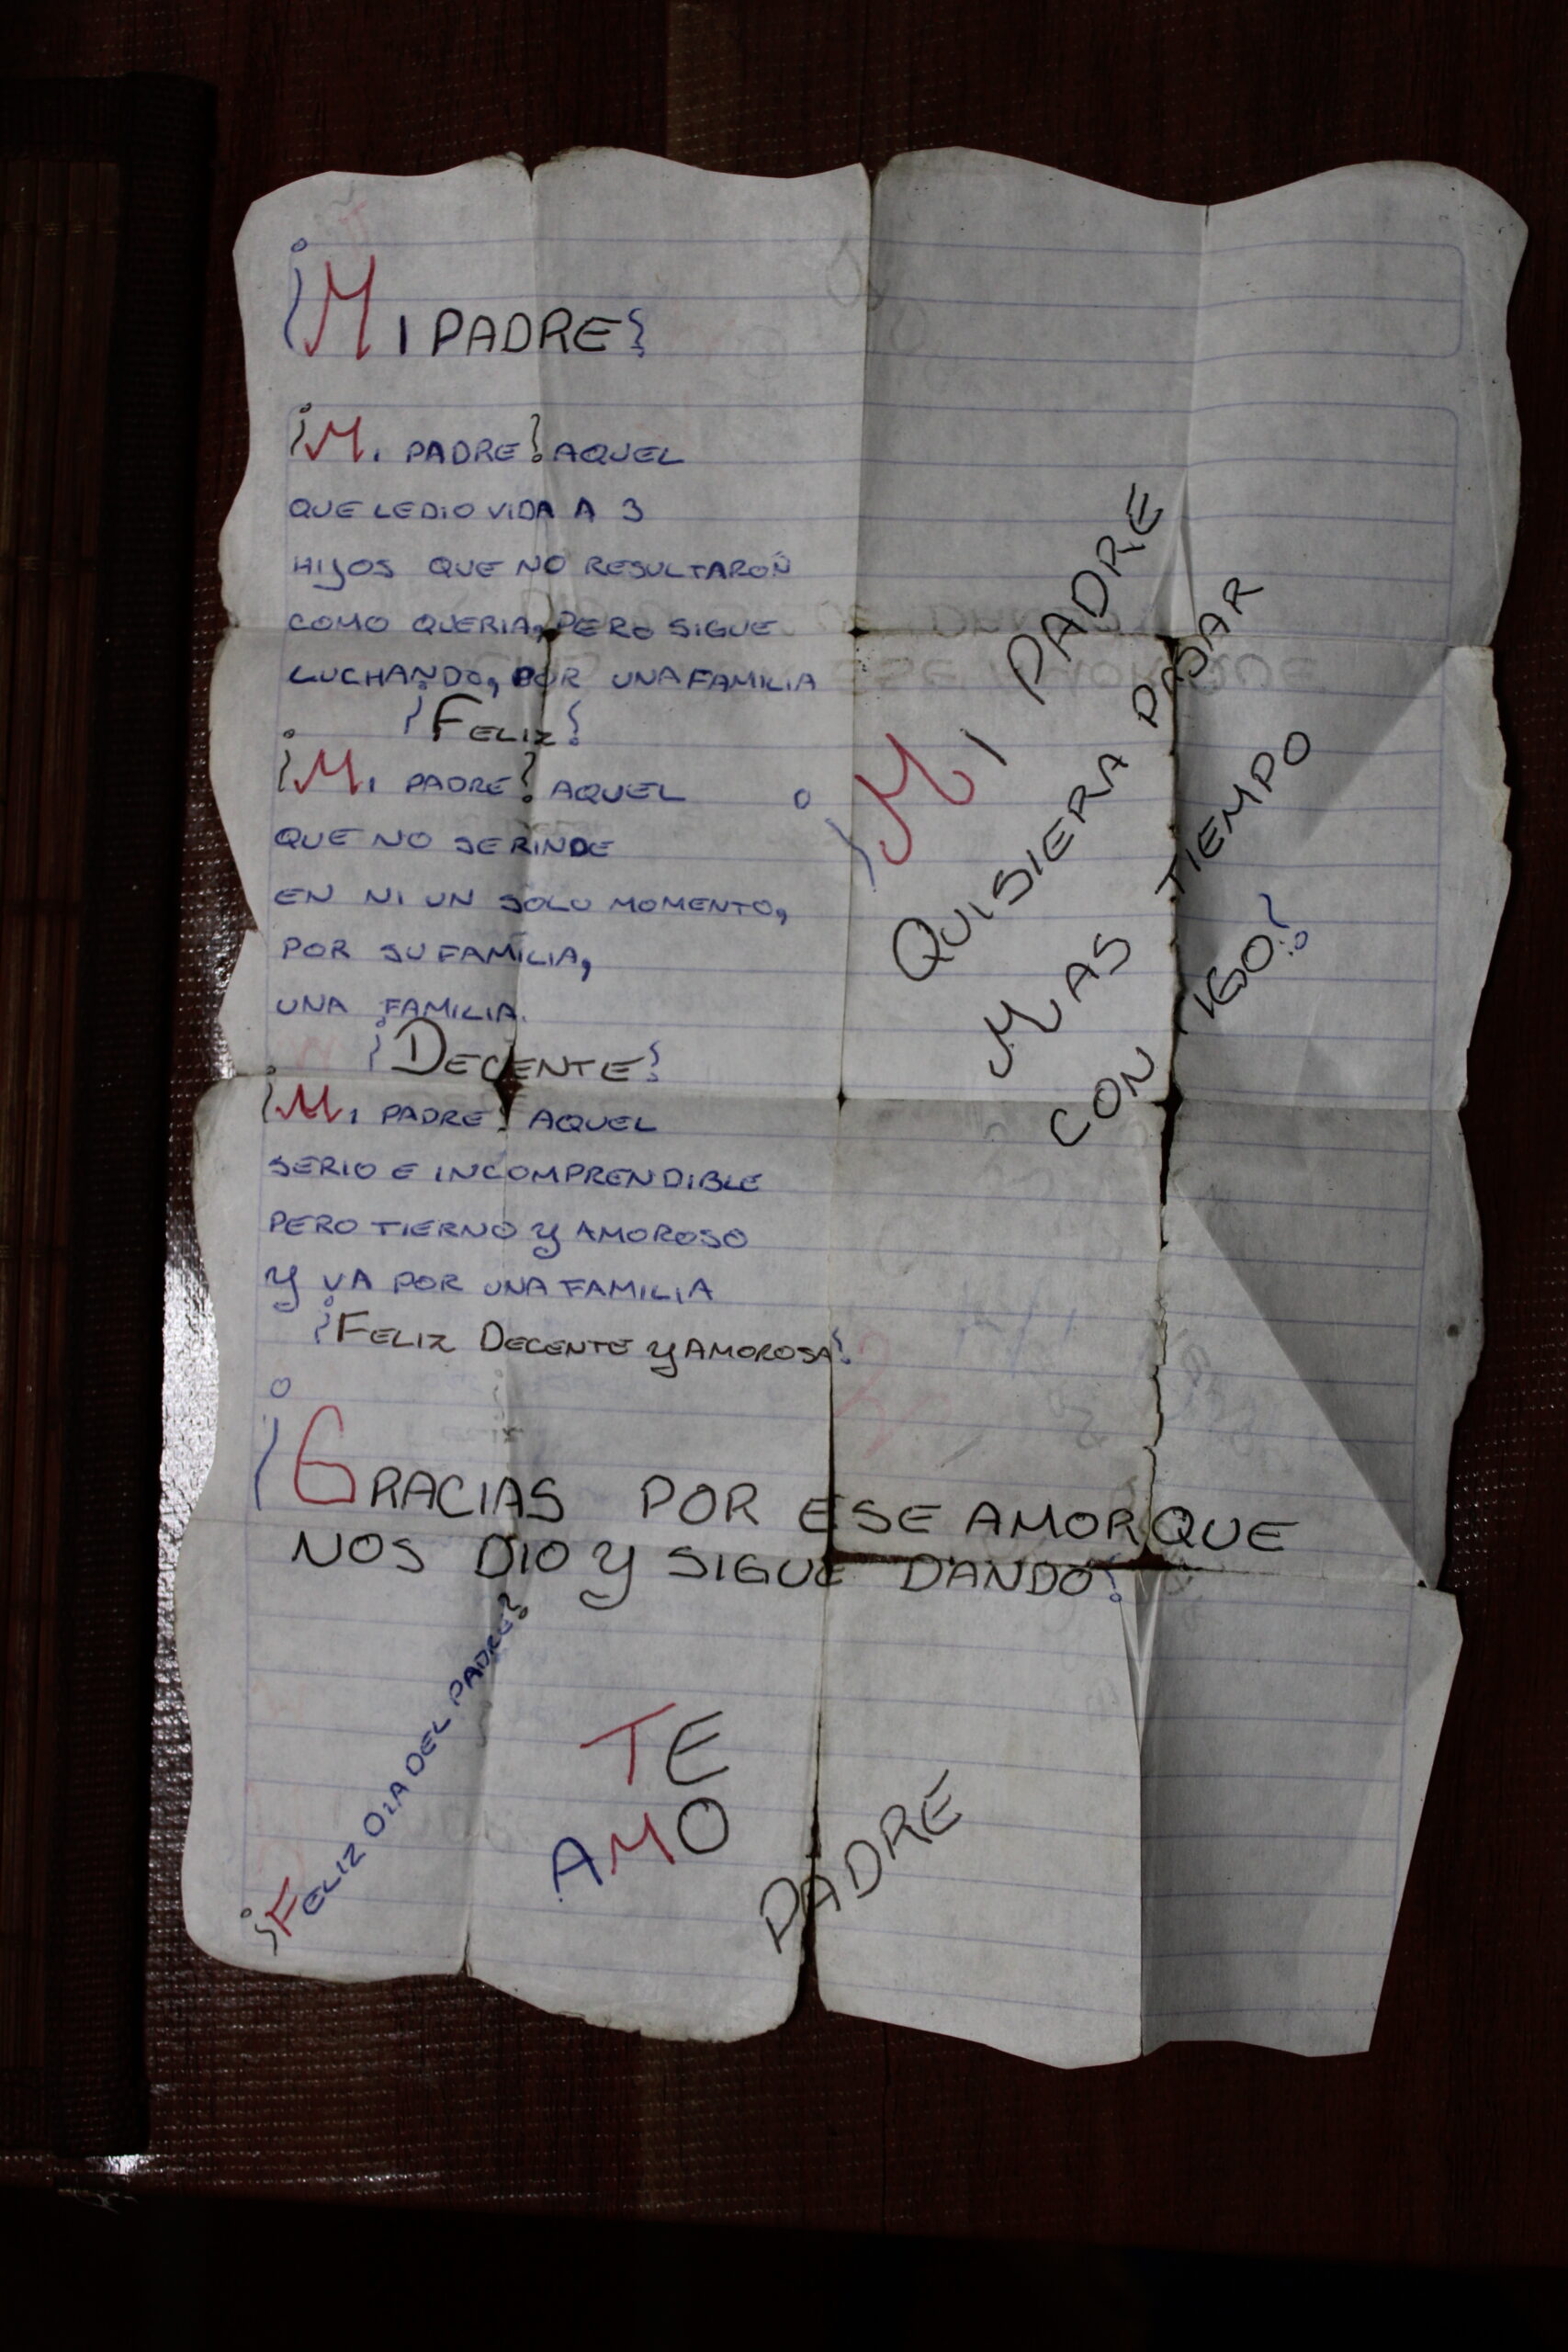 ¡MI PADRE!
¡MI PADRE! AQUEL
QUE LE DIO VIDA A 3
HIJOS QUE NO RESULTARON
COMO QUERIA, PERO SIGUE
LUCHANDO, POR UNA FAMILIA
¡FELIZ!
¡MI PADRE! AQUEL
QUE NO SE RINDE
EN NI UN SOLO MOMENTO,
POR SU FAMILIA,
UNA FAMILIA.
¡DECENTE!
¡MI PADRE! AQUEL
SERIO E INCOMPRENDIBLE
PERO TIERNO Y AMOROSO
Y VA POR UNA FAMILIA
¡FELIZ DECENTE Y AMOROSA!
¡MI PADRE
QUISIERA PASAR
MAS TIEMPO
CON IGO!
¡GRACIAS POR ESE AMOR QUE
NOS DIO Y SIGUE DANDO!
¡FELIZ DIA DEL PADRE!
TE
AMO
PADRE